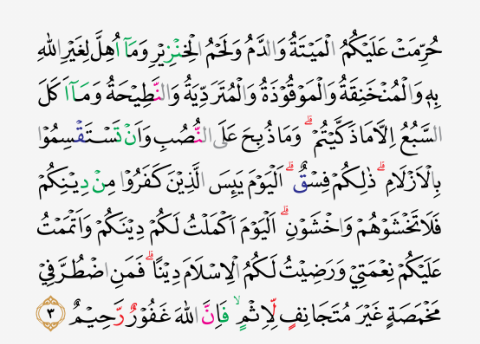 حُرِّمَتْ عَلَيْكُمُ الْمَيْتَةُ وَالدَّمُ وَلَحْمُ الْخِنْزِيْرِ وَمَآ اُهِلَّ لِغَيْرِ اللّٰهِ
بِهٖ وَالْمُنْخَنِقَةُ وَالْمَوْقُوْذَةُ وَالْمُتَرَدِّيَةُ وَالنَّطِيْحَةُ وَمَآ اَكَلَ
السَّبُعُ اِلَّا مَا ذَكَّيْتُمْۗ وَمَا ذُبِحَ عَلَى النُّصُبِ وَاَنْ تَسْتَقْسِمُوْا
بِالْاَزْلَامِۗ ذٰلِكُمْ فِسْقٌۗ اَلْيَوْمَ يَىِٕسَ الَّذِيْنَ كَفَرُوْا مِنْ دِيْنِكُمْ
فَلَا تَخْشَوْهُمْ وَاخْشَوْنِۗ اَلْيَوْمَ اَكْمَلْتُ لَكُمْ دِيْنَكُمْ وَاَتْمَمْتُ
عَلَيْكُمْ نِعْمَتِيْ وَرَضِيْتُ لَكُمُ الْاِسْلَامَ دِيْنًاۗ فَمَنِ اضْطُرَّ فِيْ
مَخْمَصَةٍ غَيْرَ مُتَجَانِفٍ لِّاِثْمٍۙ فَاِنَّ اللّٰهَ غَفُوْرٌ رَّحِيْمٌ ٣